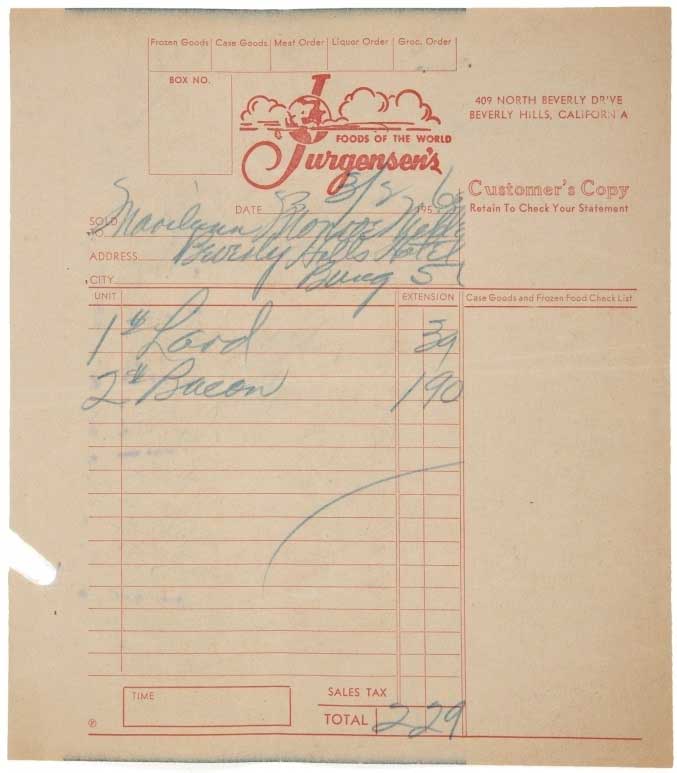 Frozen Goods Case Goods Meat Order Liquor Order Groc. Order
BOX NO.
409 NORTH BEVERLY DR'VE
BEVERLY HILLS, CALIFORN A
FOODS OF THE WORLD
Jurgensen's
Customer's Copy
Retain To Check Your Statement
DATE 195
SOLD TO Marilynn Monroe
ADDRESS Beverly Hills Hotel
CITY Bung 5
UNIT EXTENSION Case Goods and Frozen Food Check List
1# Lard 39
2# Bacon 190
TIME
SALES TAX
TOTAL 229
P